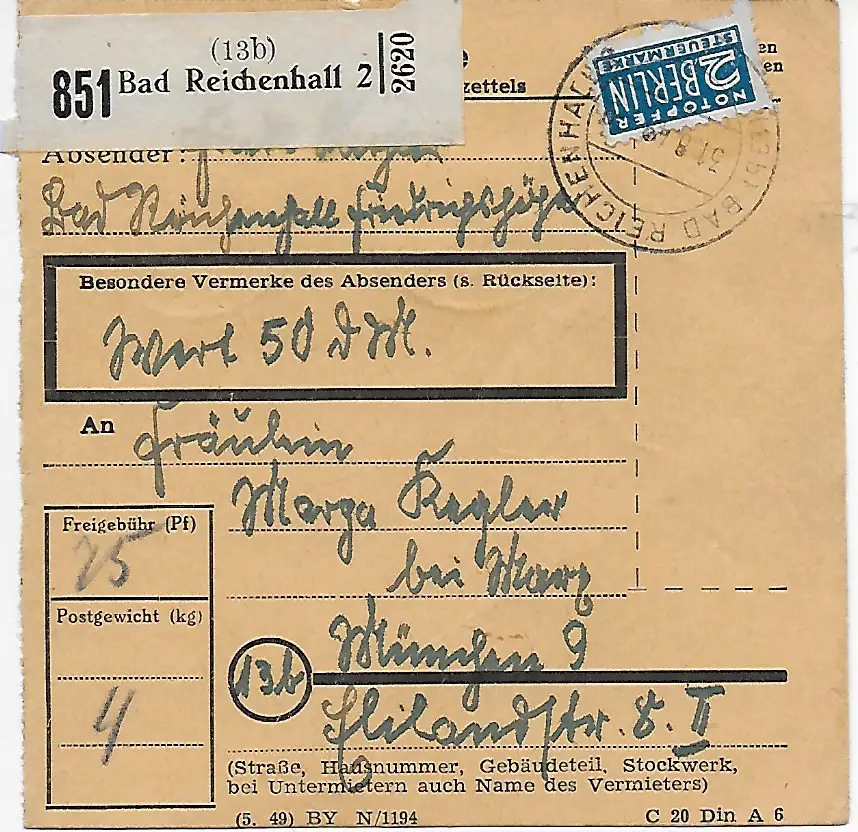 (13b)
851 Bad Reichenhall 2 2620
zettels
en
en
NOTOPFER
2 BERLIN
STEUERMARKE
(13b) BAD REICHENHALL
31.8.49
Absender:
Bad Reichenhall Friedrichshöhe
Besondere Vermerke des Absenders (s. Rückseite):
Wert 50 DM.
An Fräulein
Marga Kegler
bei Marz
München 9
13b
str. 8. II
Freigebühr (Pf)
75
Postgewicht (kg)
4
(Straße, Hausnummer, Gebäudeteil, Stockwerk,
bei Untermietern auch Name des Vermieters)
(5. 49) BY N/1194
C 20 Din A 6